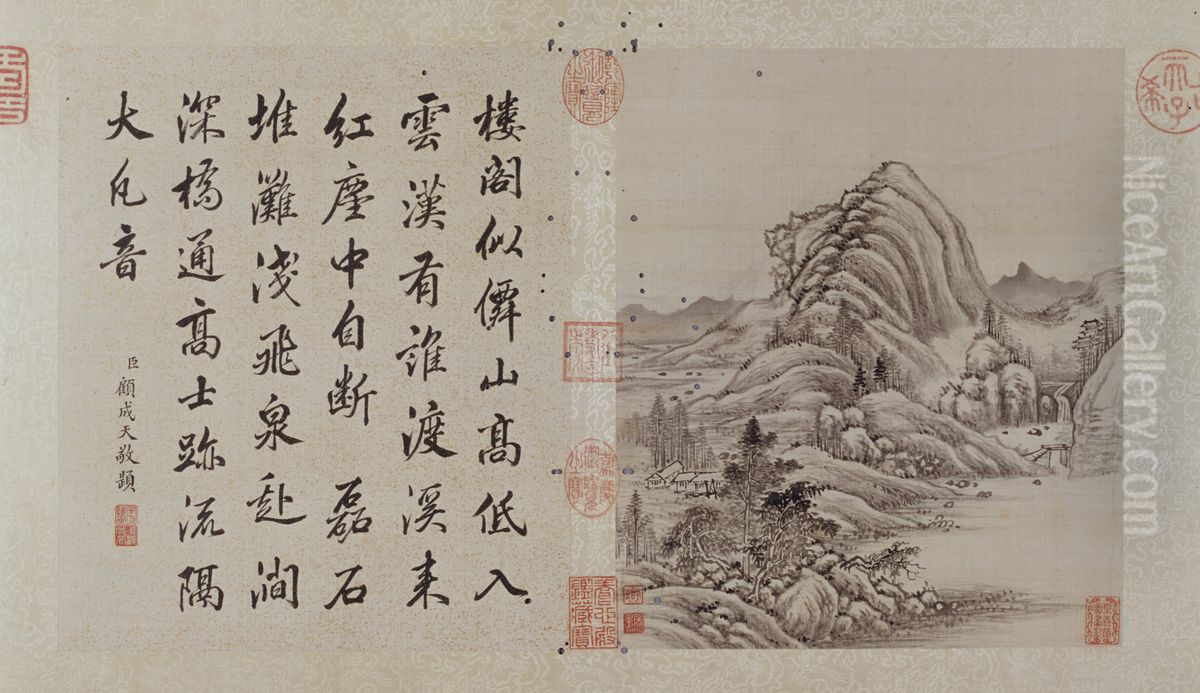 樓閣似僊山高低入
雲漢有誰渡溪来
紅塵中自断 磊石
堆灘淺飛泉赴澗
深橋通高士跡流隔
大凡音
臣顧成天敬題
嘉慶御覽之寶
養心殿鑑藏寶
NiceArtGallery.com